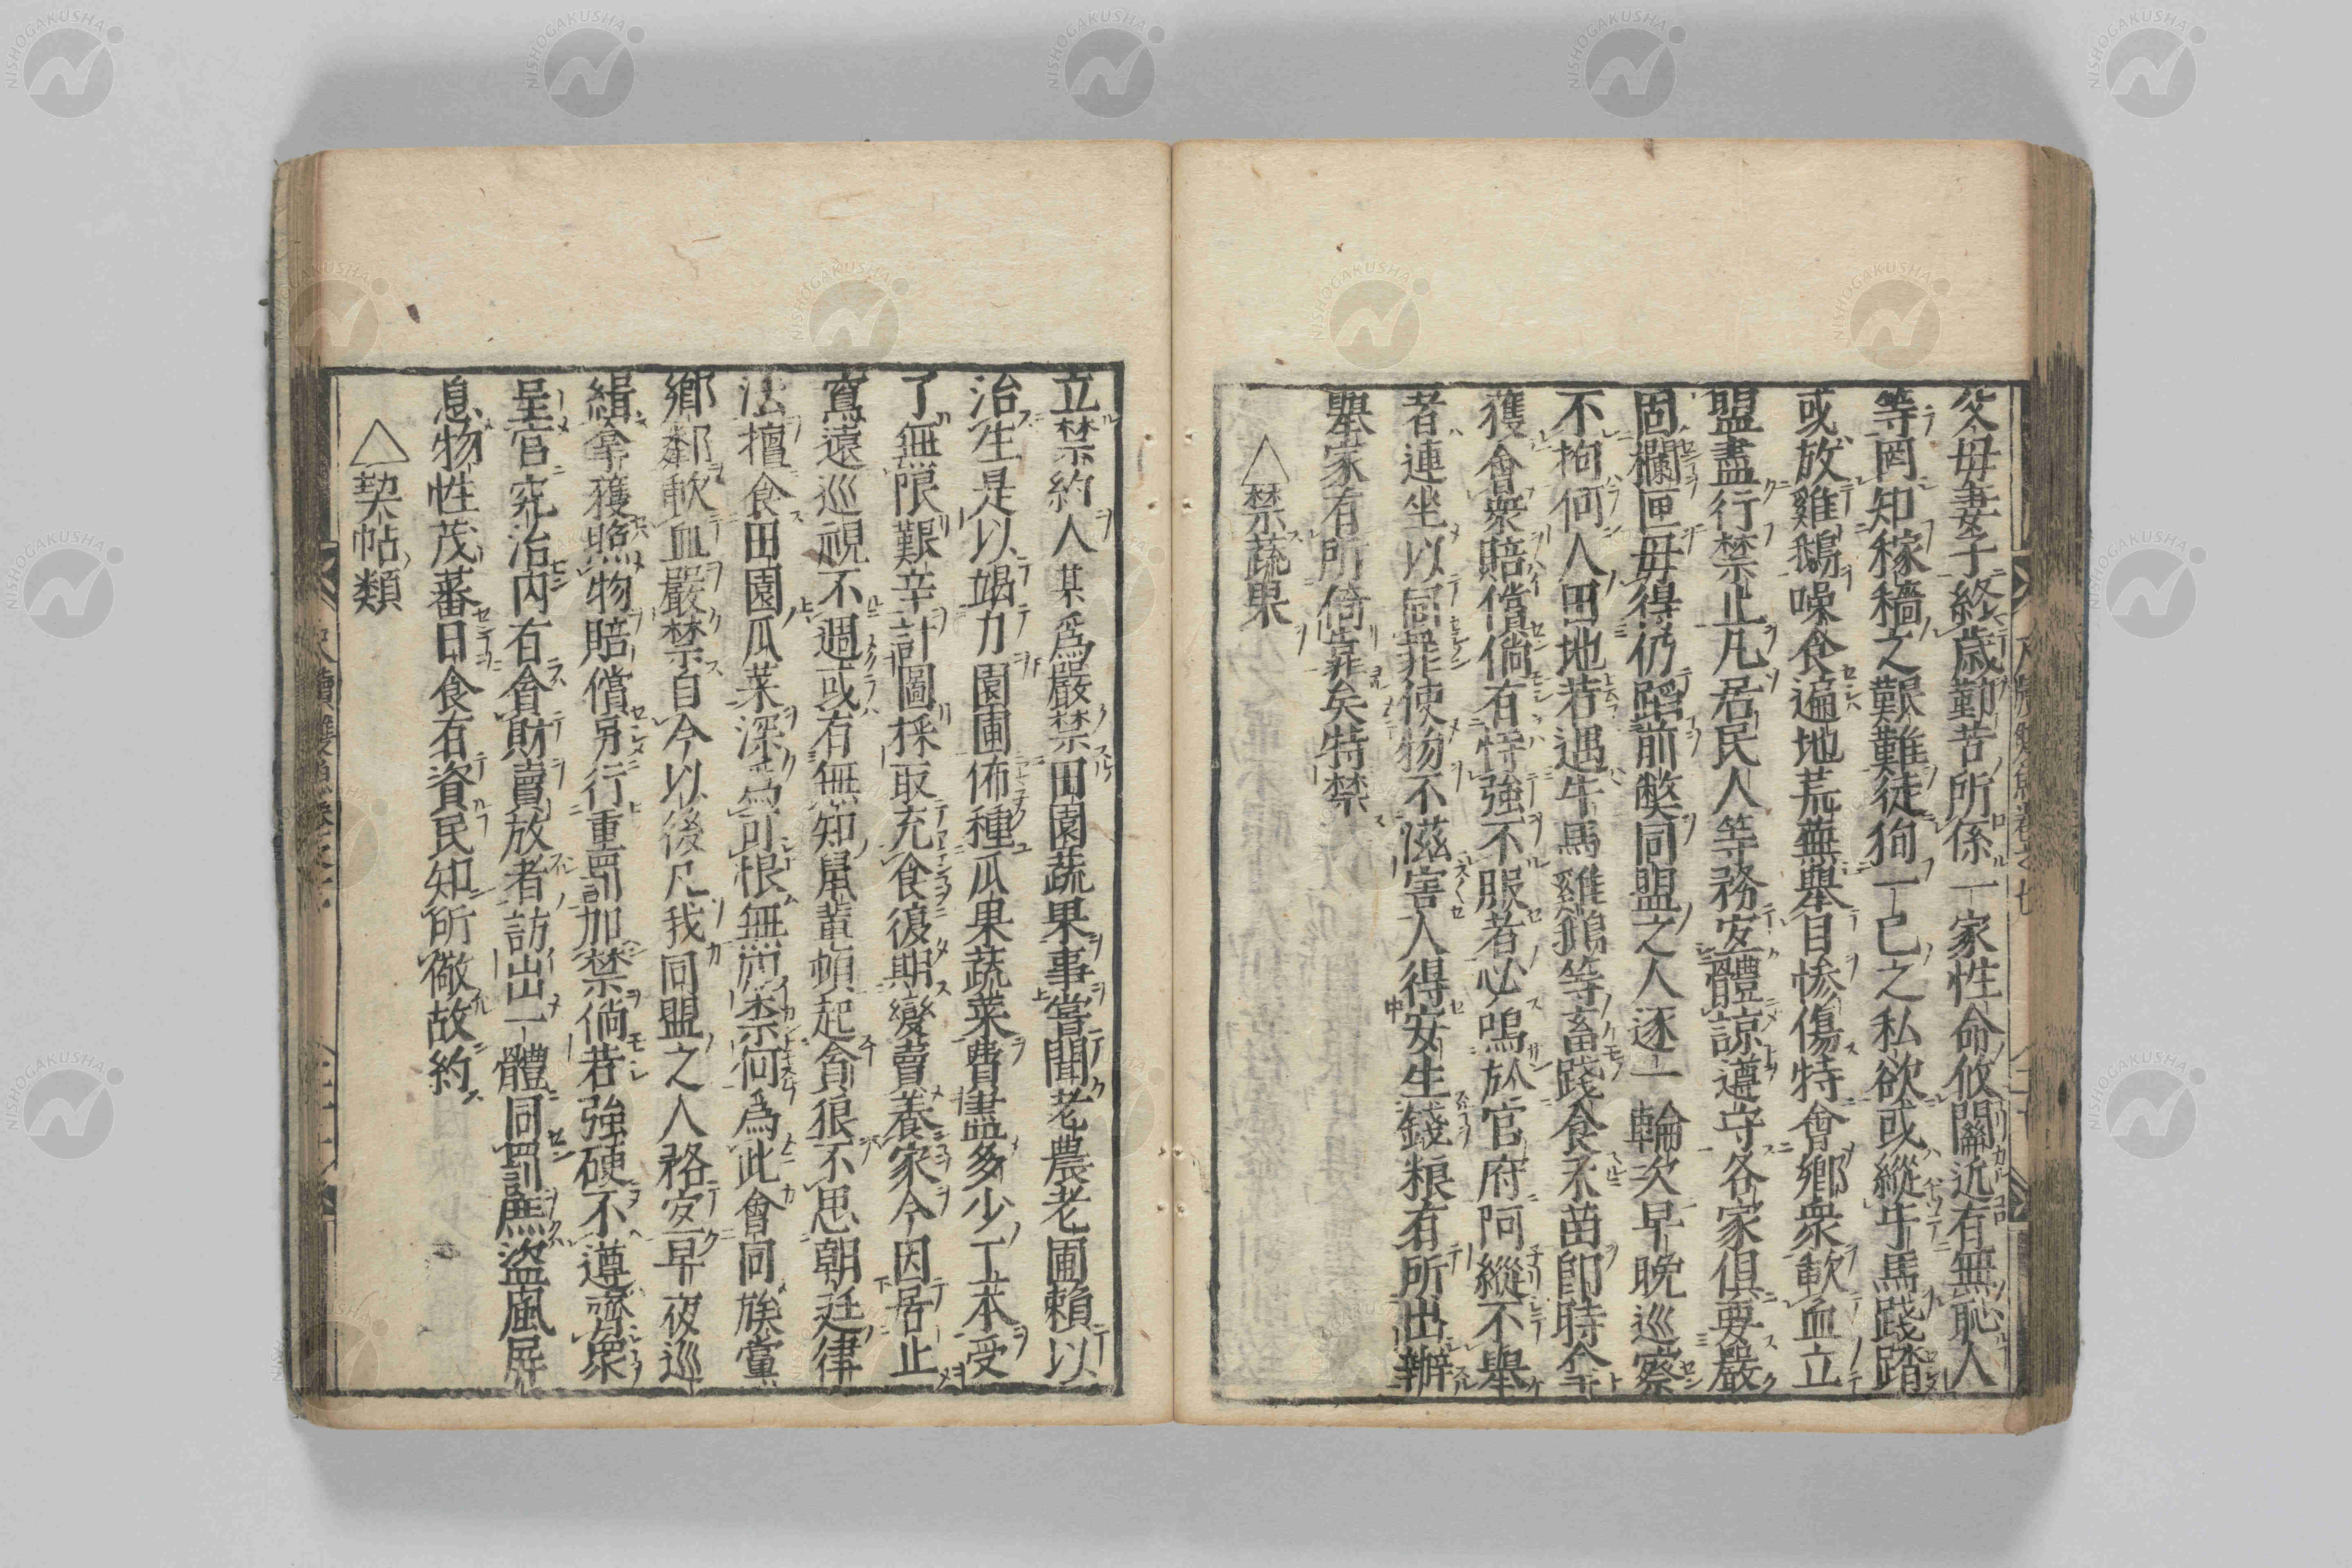 父母妻子終歳勤苦所係一家性命攸關近有無恥人
等罔知稼穡之艱難徒狥一己之私欲或縱牛馬踐踏
或放雞鵝噪食遍地荒蕪舉目惨傷特會鄉衆歃血立
盟盡行禁止凡居民人等務安體諒遵守各家俱要嚴
固欄匣毋得仍蹈前弊同盟之人逐一輪次早晚巡察
不拘何人田地若遇牛馬雞鵝等畜踐食禾苗即時全
獲會衆賠償倘有恃強不服者必鳴於官府阿縱不舉
者連坐以同罪使物不滋害人得安生錢粮有所出辦
舉家有所倚靠矣特禁
△禁蔬果
立禁約人某爲嚴禁田園蔬果事嘗聞老農老圃賴以
治生是以竭力園圃佈種瓜果蔬菜費盡多少工本受
了無限艱辛計圖採取充食復期變賣養家今因居止
寫遠巡視不週或有無知鼠輩頓起貪狼不思朝廷律
法擅食田園瓜菜深爲可恨無禁何爲此會同族黨
鄉鄰歃血嚴禁自今以後凡我同盟之人務安早夜巡
緝拿獲照物賠償另行重罰加禁倘若強硬不遵齊衆
呈官究治内有貪財賣放者訪出一體同罰庶盜風屏
息物性茂蕃日食有資民知所儆故約
△契帖類